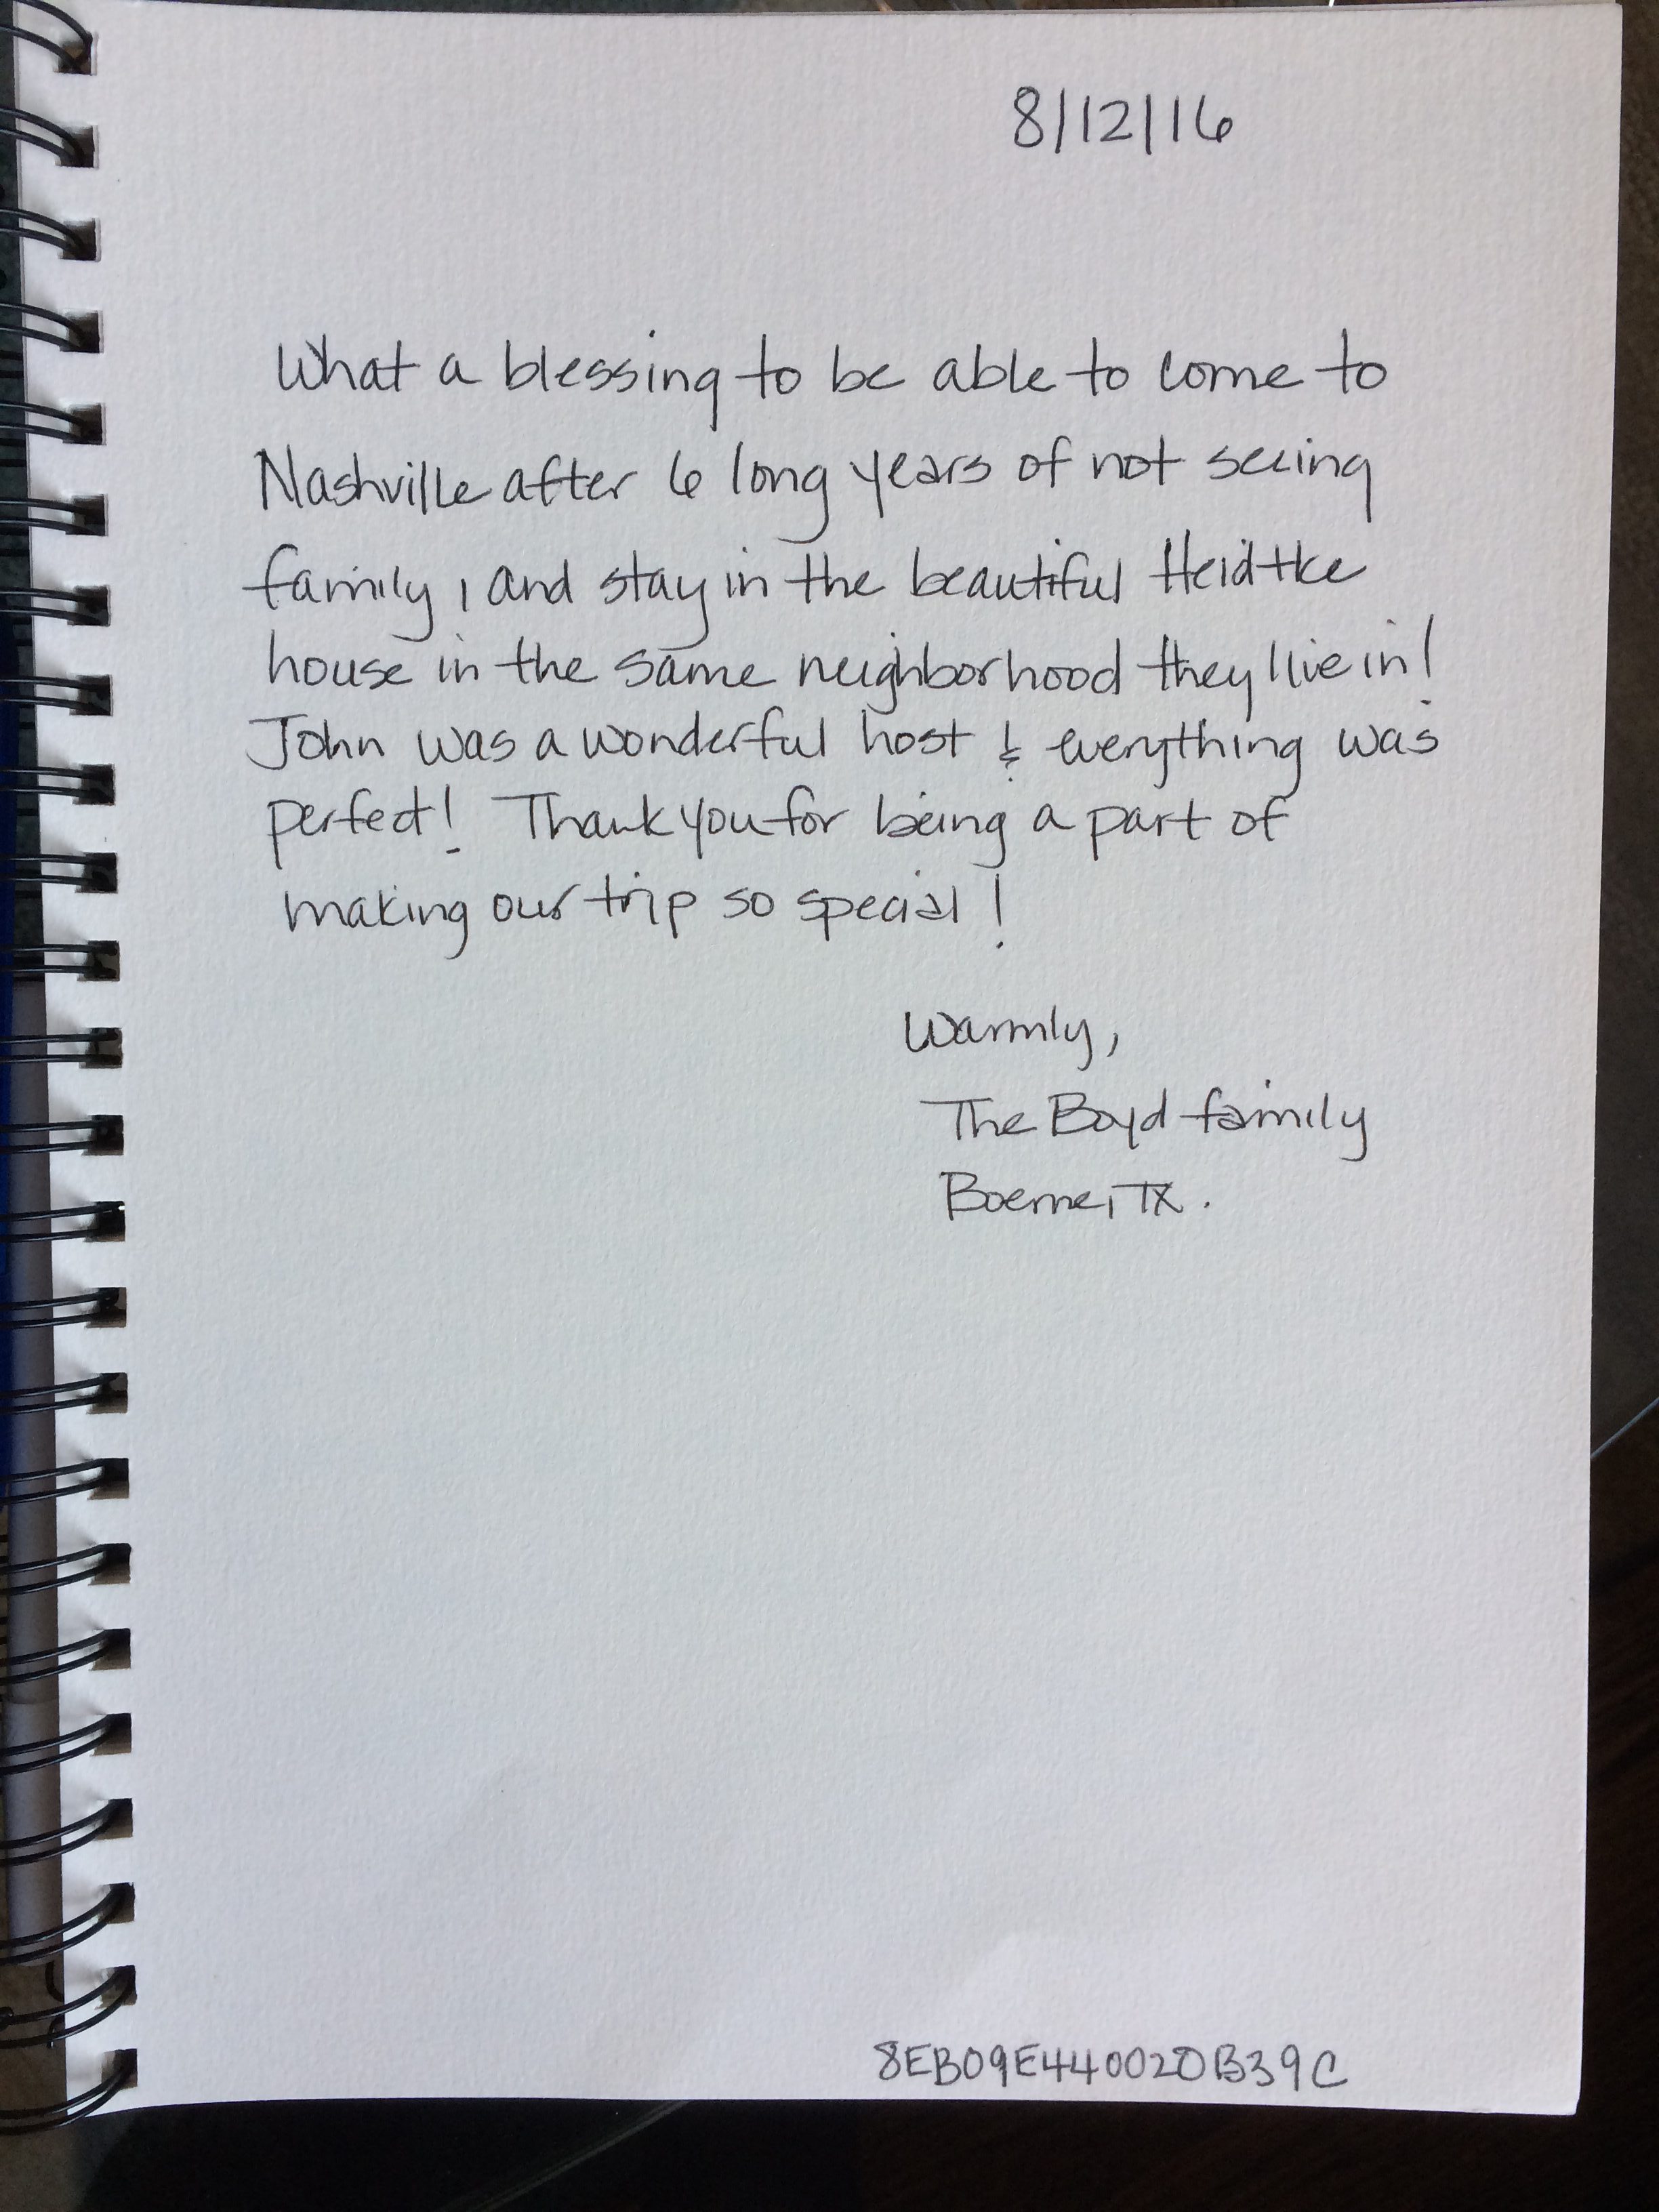 8/12/16
What a blessing to be able to come to
Nashville after 6 long years of not seeing
family, and stay in the beautiful Heidtke
house in the same neighborhood they live in!
John was a wonderful host & everything was
perfect! Thank you for being a part of
making our trip so special!
Warmly,
The Boyd family
Boerne, TX.
8EB09E440020B39C